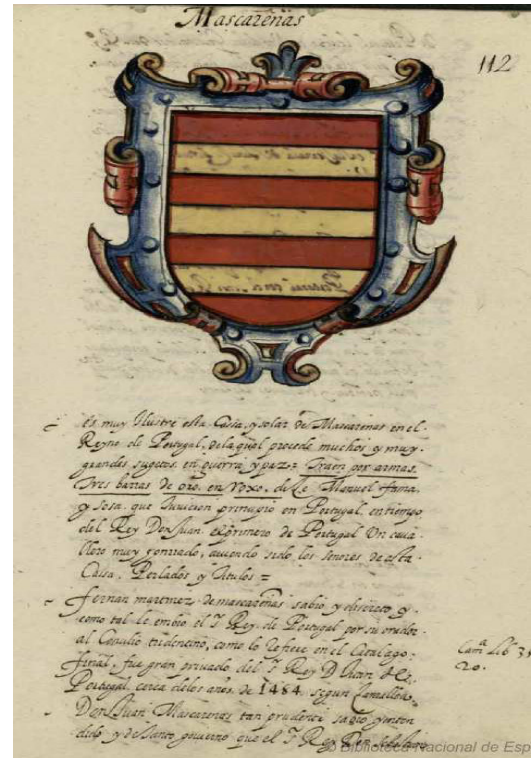 Mascareñas
112
es muy Ilustre esta Casa, y solar de Mascareñas en el
Reyno de Portugal, dela qual procede muchos y muy
grandes sugetos en guerra, y paz. Traen por armas
Tres barras de oro, en Roxo. dize Manuel fama
y Sosa que tuvieron principio en Portugal en tiempo
del Rey Don Juan el primero de Portugal Un cava
llero muy honrado, aviendo sido los señores de esta
Casa, Perlados y titulos =
fernan martinez de mascareñas sabio y discreto y
como tal le embio el S. Rey de Portugal por su orador
al Concilio tridentino, como lo refiere en el Catalago
final, fue gran privado del S. Rey D Juan
Portugal cerca delos años de 1484. segun
Cam.ª Lib 3
20.
Don Juan Mascareñas tan prudente sabio y enten
dido y de santo govierno que el S. Rey Don
© Biblioteca Nacional de Esp